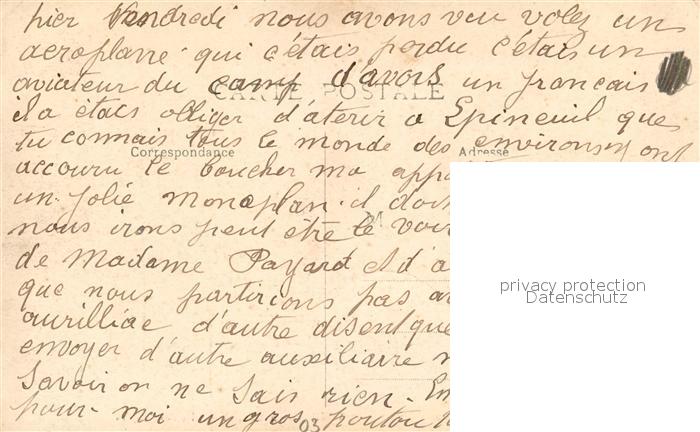 hier Vendredi nous avons veu volez un
aeroplane qui c'étais perdu c'étais un
aviateur du camp d'avors un francais
CARTE POSTALE
il a étais obliger d'aterir a Epineuil que
tu connais tous le monde des environs y ont
Correspondance Adresse
accouru le boucher ma
un jolie monoplan il
nous irons peut être le voir
de Madame Payard et d'a
que nous partirions pas
privacy protection
Datenschutz
aurilliac d'autre disent que
envoyer d'autre auxiliaire
savoir on ne sais rien -
pour moi un gros 03 poutou